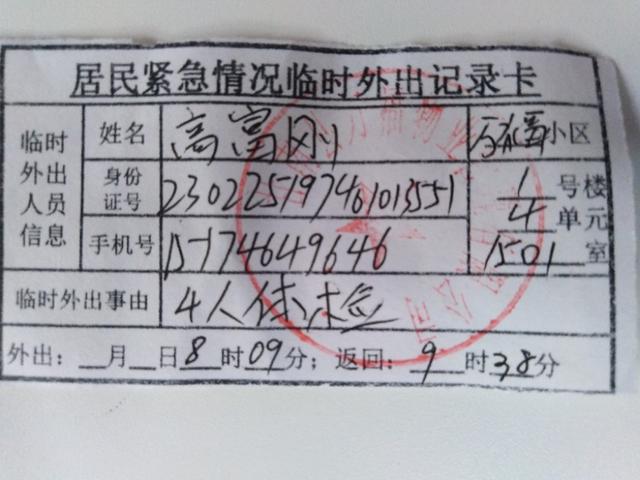 居民紧急情况临时外出记录卡
临时外出人员信息 姓名 高富刚 万福小区
身份证号 230225197461013551 1 号楼
4 单元
手机号 15174649646 1501 室
临时外出事由 4人体检
外出：__月__日8时09分；返回：9时38分